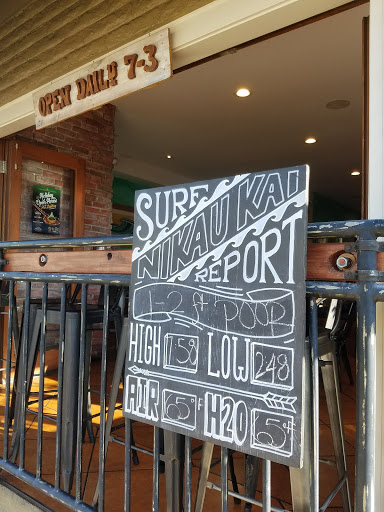 OPEN DAILY 7-3
SURF NIKAU KAI
REPORT
1-2 ft POOR
HIGH 758 LOW 248
AIR 65°F H2O 65°F